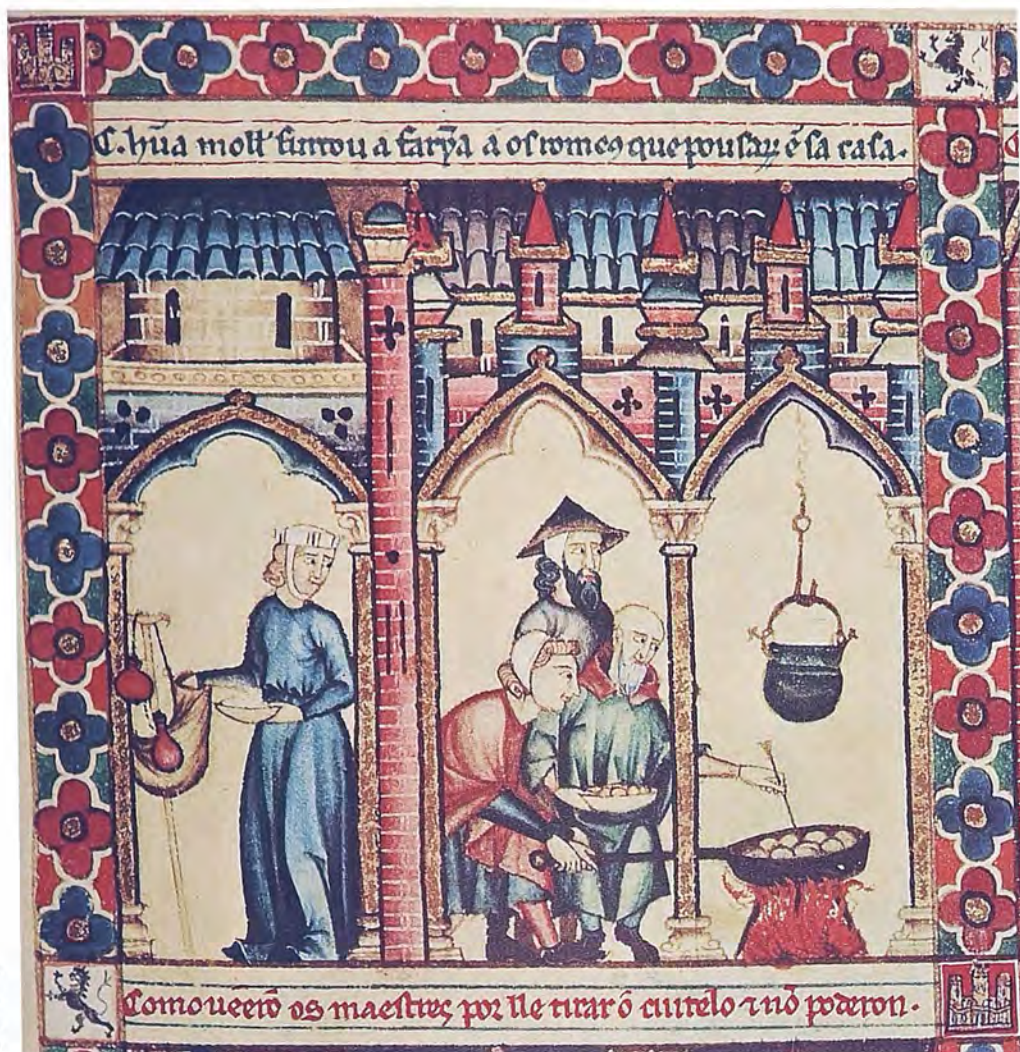 C. hũa moll' furtou a farỹa a os romeos que pousarõ ẽ sa casa.
Como uẽerõ os maestres por lle tirar o cuitelo ⁊ nõ poderon.